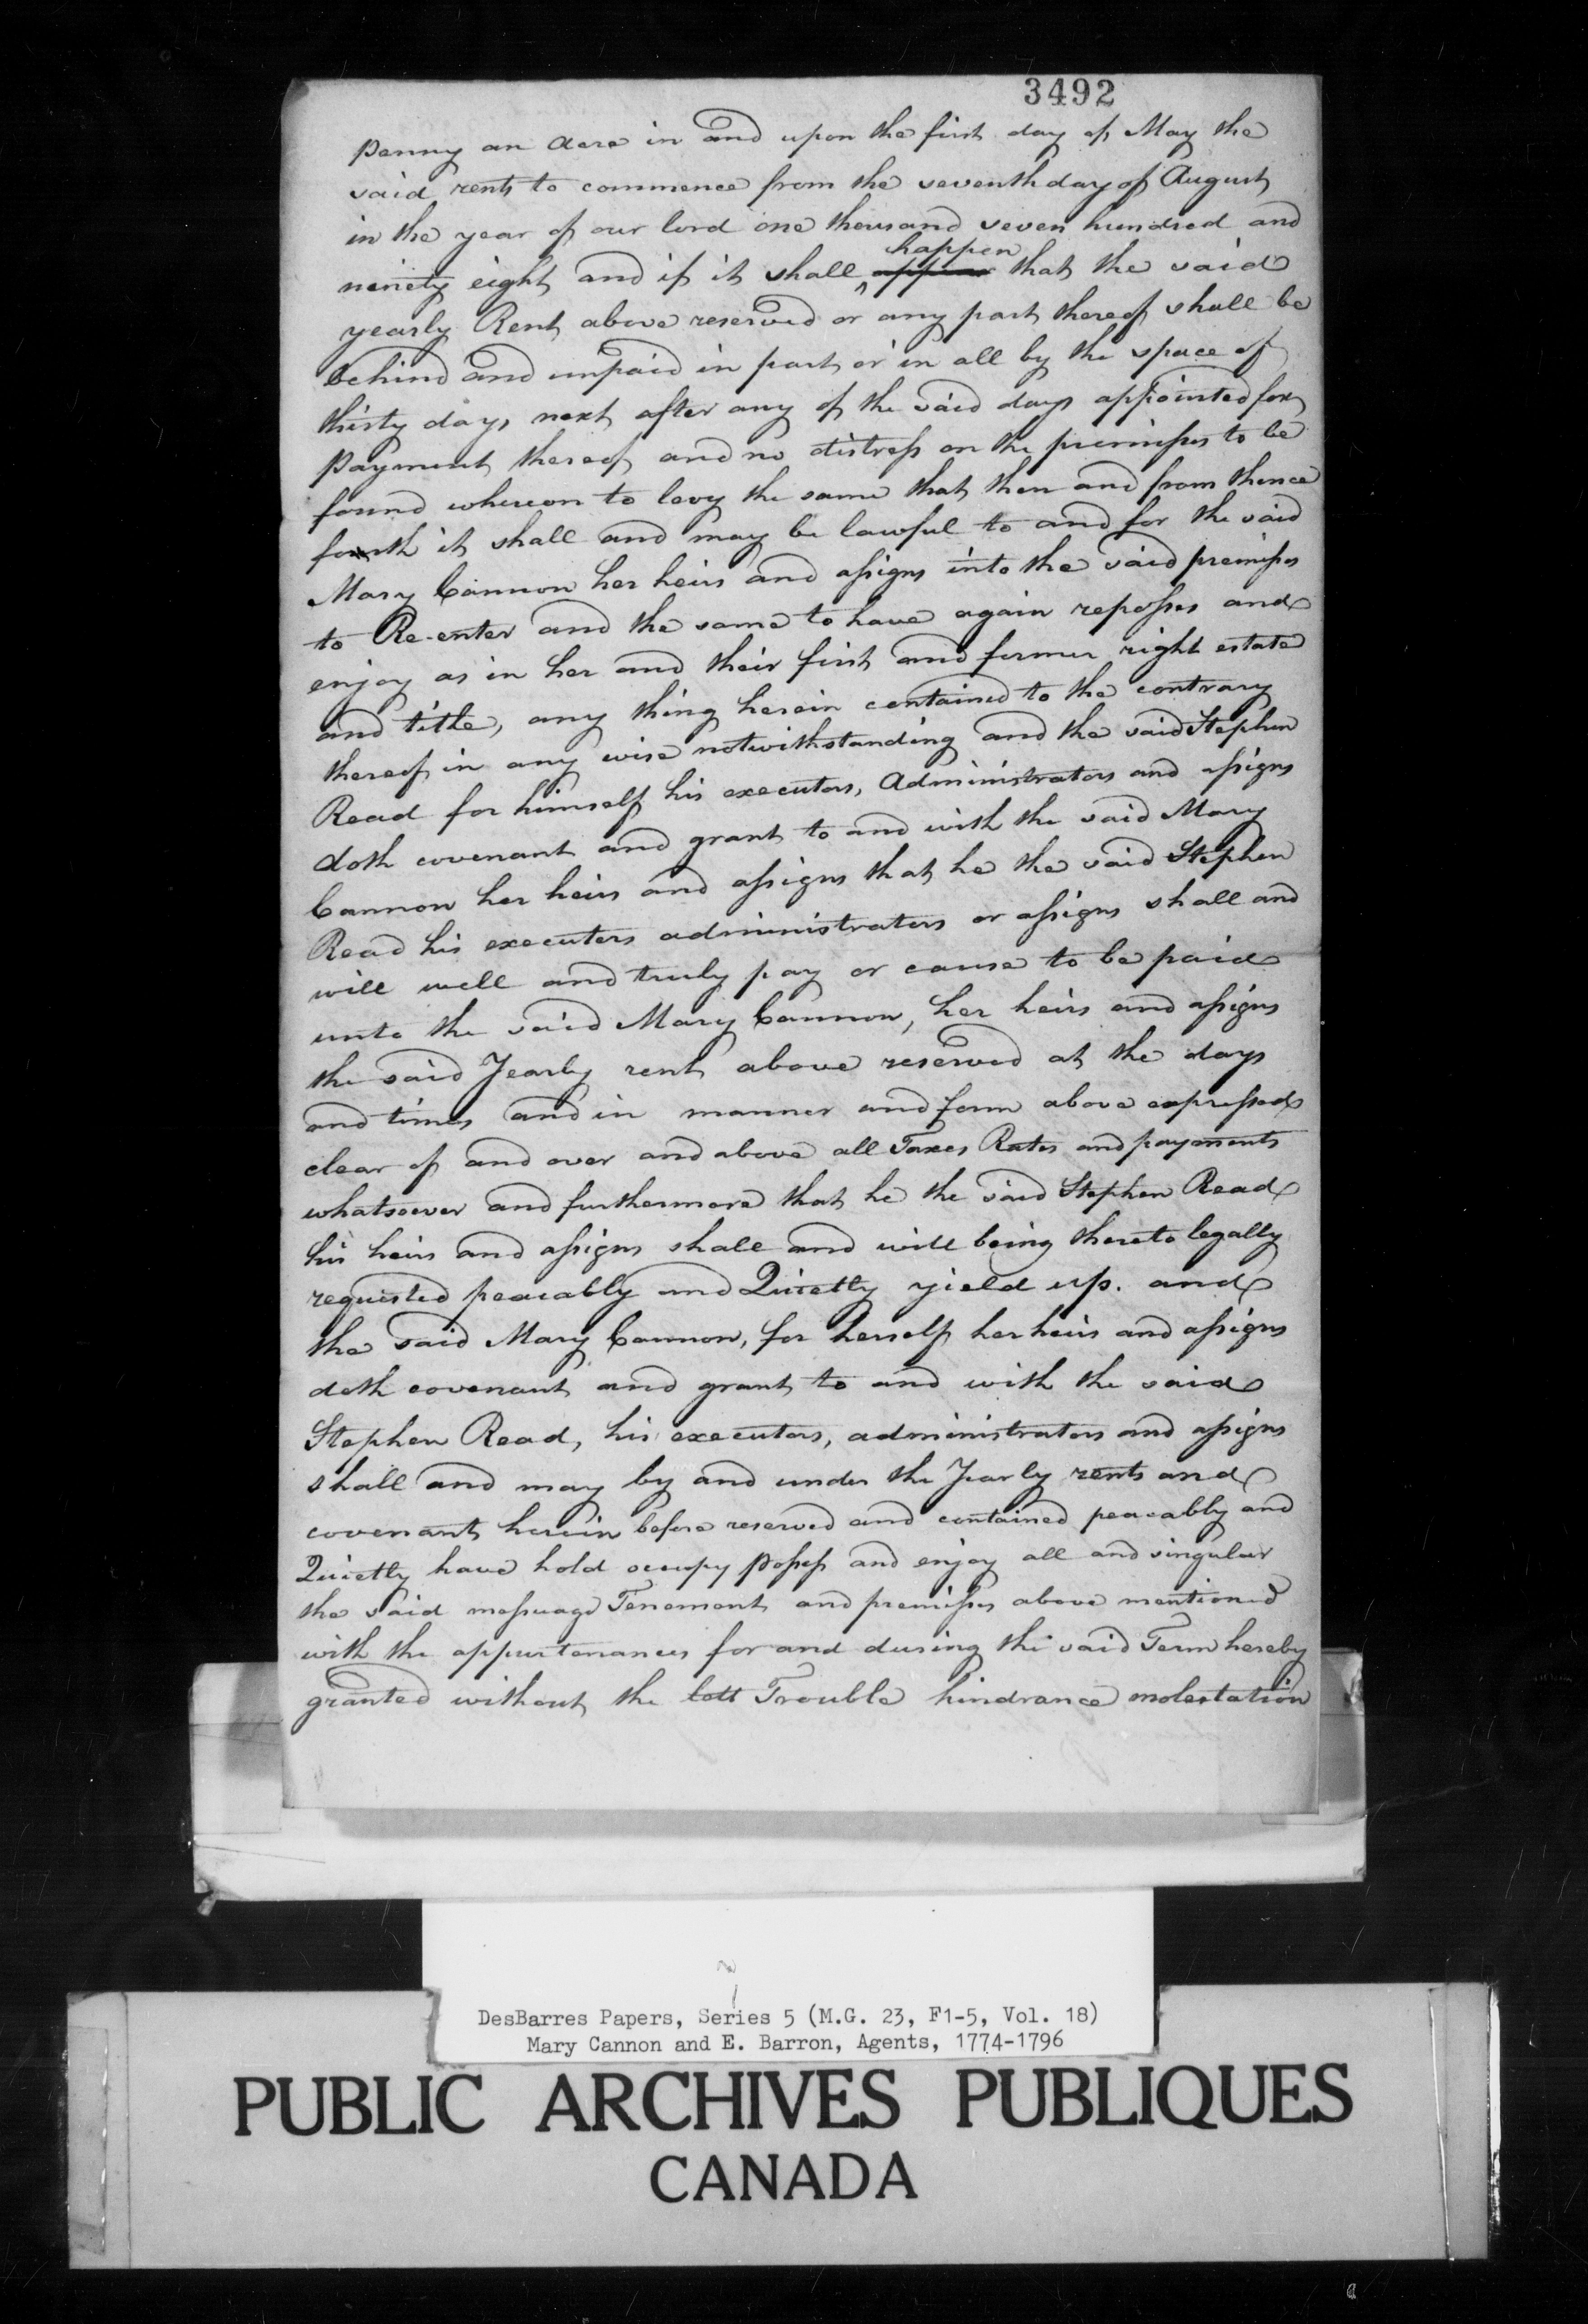 3492
penny an acre in and upon the first day of May the
said rents to commence from the seventh day of August
in the year of our lord one thousand seven hundred and
happen
ninety eight and if it shall ^ that the said
yearly Rent above reserved or any part thereof shall be
behind and unpaid in part or in all by the space of
thirty days next after any of the said days appointed for
payment thereof and no distress on the premisses to be
found whereon to levy the same that then and from thence
forth it shall and may be lawful to and for the said
Mary Cannon her heirs and assigns into the said premisses
to Re-enter and the same to have again reposses and
enjoy as in her and their first and former right estate
and title, any thing herein contained to the contrary
thereof in any wise notwithstanding and the said Stephen
Read for himself his executors, Administrators and assigns
doth covenant and grant to and with the said Mary
Cannon her heirs and assigns that he the said Stephen
Read his executers administrators or assigns shall and
will well and truly pay or cause to be paid
unto the said Mary Cannon, her heirs and assigns
the said Yearly rent above reserved at the days
and times and in manner and form above expressed
clear of and over and above all Taxes Rates and payments
whatsoever and furthermore that he the said Stephen Read
his heirs and assigns shall and will being thereto legally
requested peacably and Quietly yield up. and
the said Mary Cannon, for herself her heirs and assigns
doth covenant and grant to and with the said
Stephen Read, his executors, administrators and assigns
shall and may by and under the Yearly rents and
covenant herein before reserved and contained peacably and
Quietly have hold occupy possess and enjoy all and singular
the said messuage Tenement and premisses above mentioned
with the appurtenances for and during the said Term hereby
granted without the lett Trouble hindrance molestation
DesBarres Papers, Series 5 (M.G. 23, F1-5, Vol. 18)
Mary Cannon and E. Barron, Agents, 1774-1796
PUBLIC ARCHIVES PUBLIQUES
CANADA